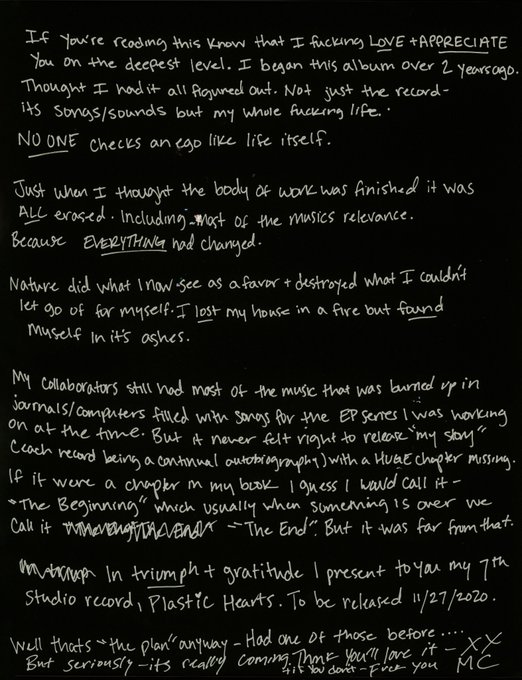 If you're reading this know that I fucking LOVE + APPRECIATE
You on the deepest level. I began this album over 2 years ago.
Thought I had it all figured out. Not just the record-
its songs/sounds but my whole fucking life.
NO ONE checks an ego like life itself.
Just when I thought the body of work was finished it was
ALL erased. Including most of the musics relevance.
Because EVERYTHING had changed.
Nature did what I now see as a favor + destroyed what I couldn't
let go of for myself. I lost my house in a fire but found
myself in it's ashes.
My collaborators still had most of the music that was burned up in
journals/computers filled with songs for the EP series I was working
on at the time. But it never felt right to release "my story"
(each record being a continual autobiography) with a HUGE chapter missing.
If it were a chapter in my book I guess I would call it -
"The Beginning" which usually when something is over we
call it "The End". But it was far from that.
In triumph + gratitude I present to you my 7th
Studio record, Plastic Hearts. To be released 11/27/2020.
Well thats "the plan" anyway - Had one of those before ....
But seriously - its really coming. Think you'll love it - XX
+ if you don't - Fuck you MC